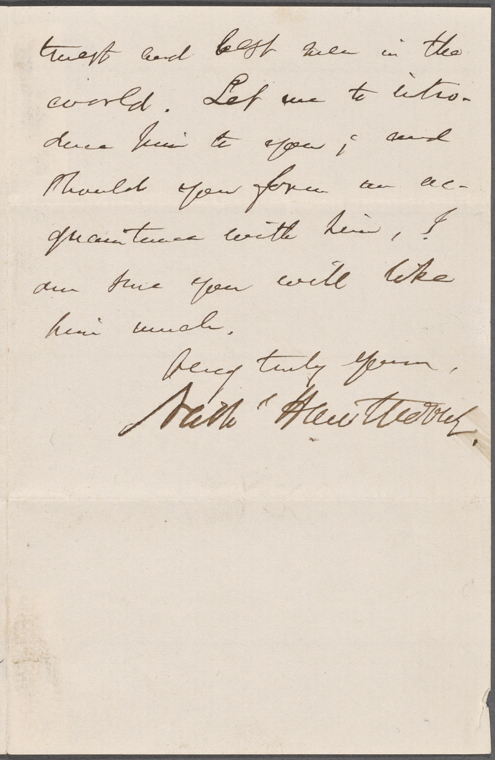 truest and best men in the
world. Let me to intro-
duce him to you; and
should you form an ac-
quaintance with him, I
am sure you will like
him much.
Very truly yours,
Nathl Hawthorne.